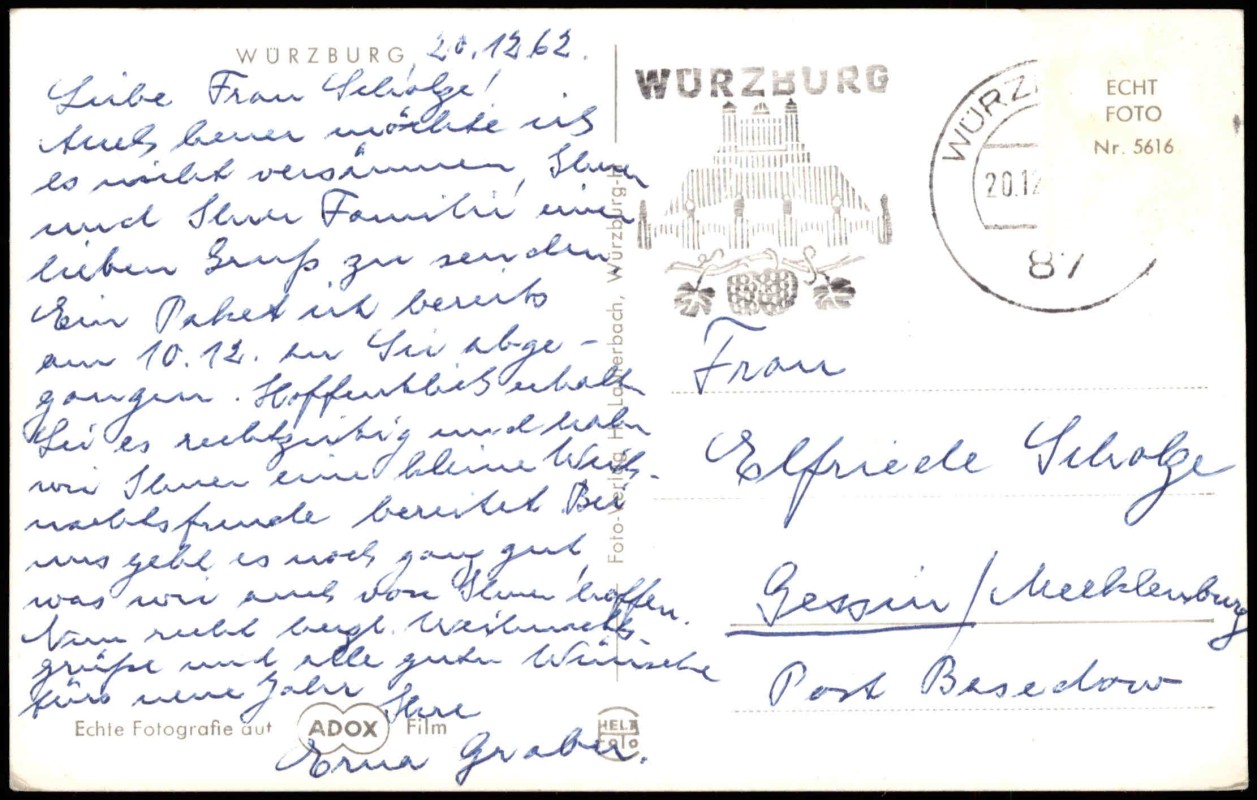 WÜRZBURG, 20.12.62.
Liebe Frau Scholze!
Auch heuer möchte ich
es nicht versäumen, Ihnen
und Ihrer Familie einen
lieben Gruß zu senden
Ein Paket ist bereits
am 10.12. an Sie abge-
gangen. Hoffentlich erhalten
Sie es rechtzeitig und haben
wir Ihnen eine kleine Weih-
nachtsfreude bereitet. Bei
uns geht es noch ganz gut,
was wir auch von Ihnen hoffen.
Nun recht herzl. Weihnachts-
grüße und alle guten Wünsche
fürs neue Jahr Ihre
Erna Graber.
Echte Fotografie auf ADOX Film
Foto-Verlag H. Lauterbach, Würzburg
HELA
Foto
WÜRZBURG
WÜRZ
20.12
87
ECHT
FOTO
Nr. 5616
Frau
Elfriede Scholze
Gessin / Mecklenburg
Post Basedow